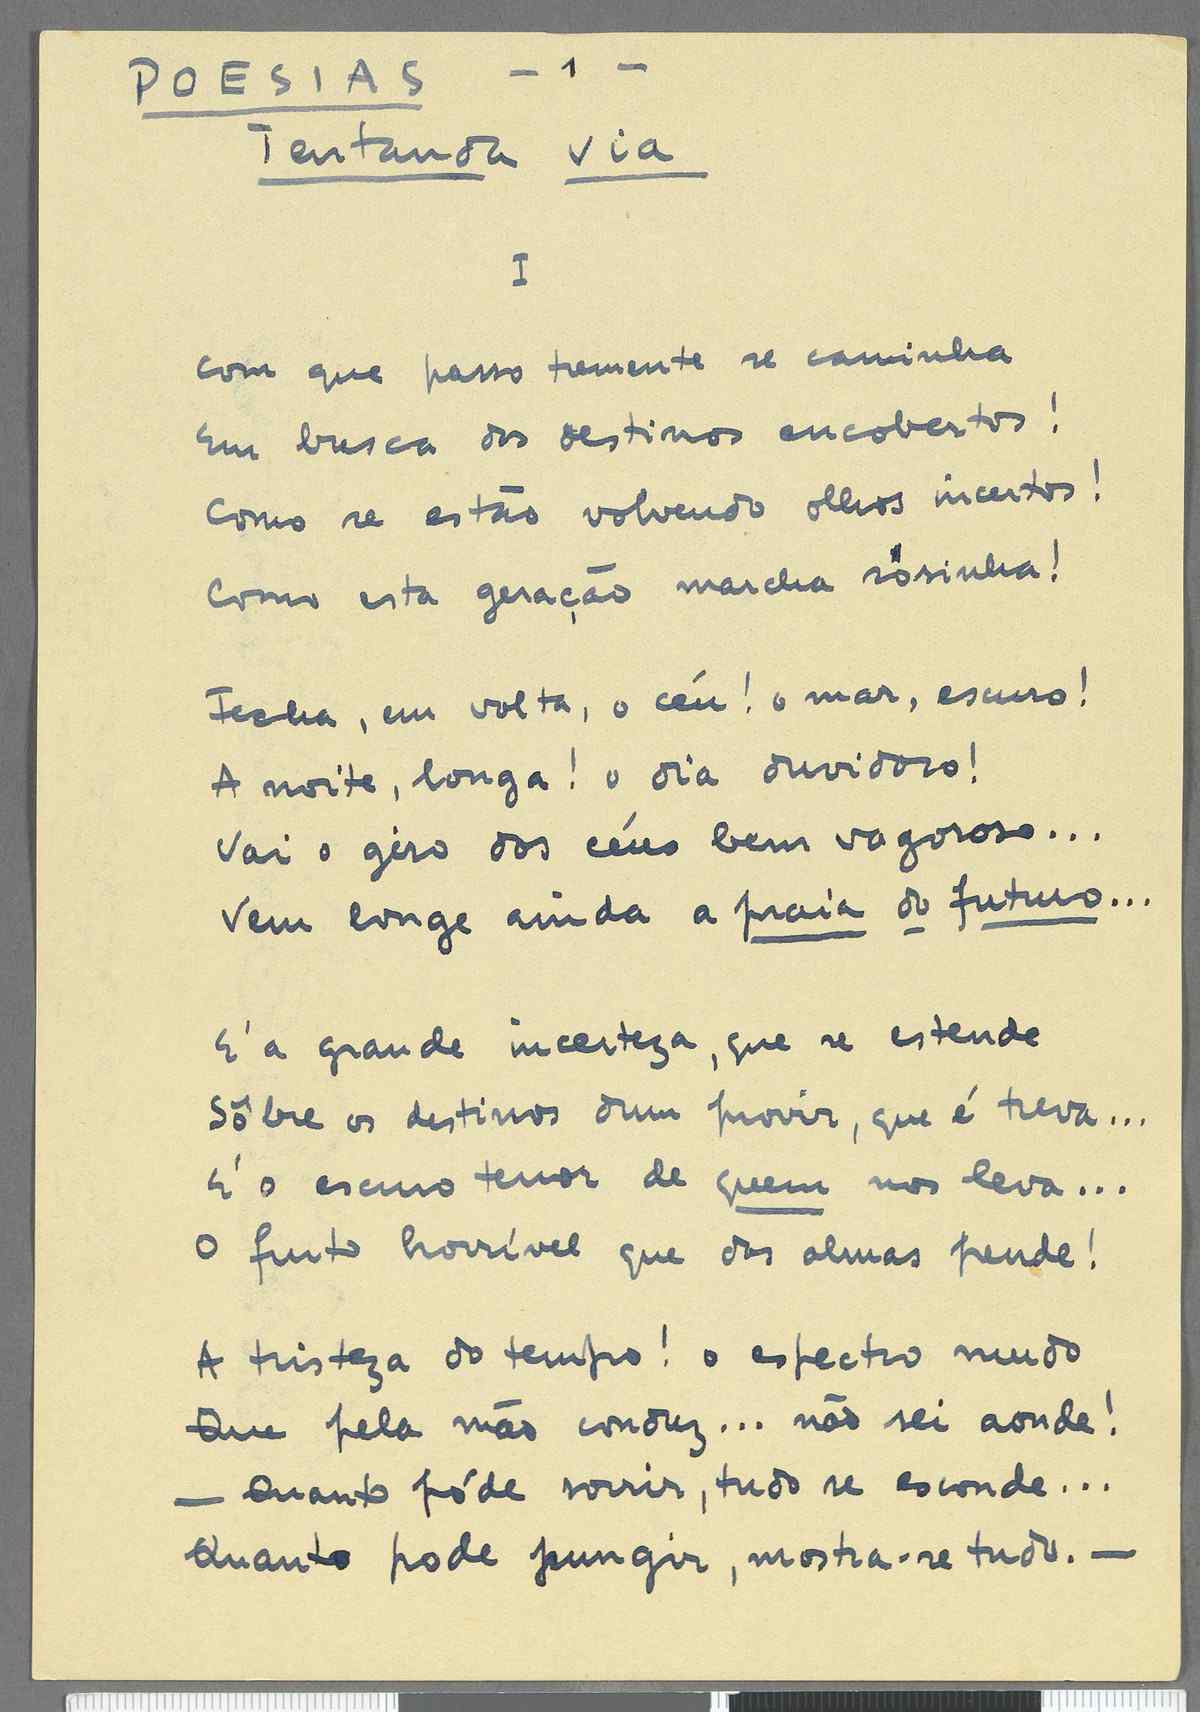 POESIAS - 1 -
Tentanda via
I
Com que passo tremente se caminha
Em busca dos destinos encobertos!
Como se estão volvendo olhos incertos!
Como esta geração marcha sòsinha!
Fecha, em volta, o céu! o mar, escuro!
A noite, longa! o dia duvidoso!
Vai o giro dos céus bem vagoroso...
Vem longe ainda a praia do futuro...
É a grande incerteza, que se estende
Sôbre os destinos dum porvir, que é treva...
É o escuro terror de quem nos leva...
O fruto horrível que das almas pende!
A tristeza do tempo! o espectro mudo
Que pela mão conduz... não sei aonde!
— Quanto póde sorrir, tudo se esconde...
Quanto pode pungir, mostra-se tudo. —